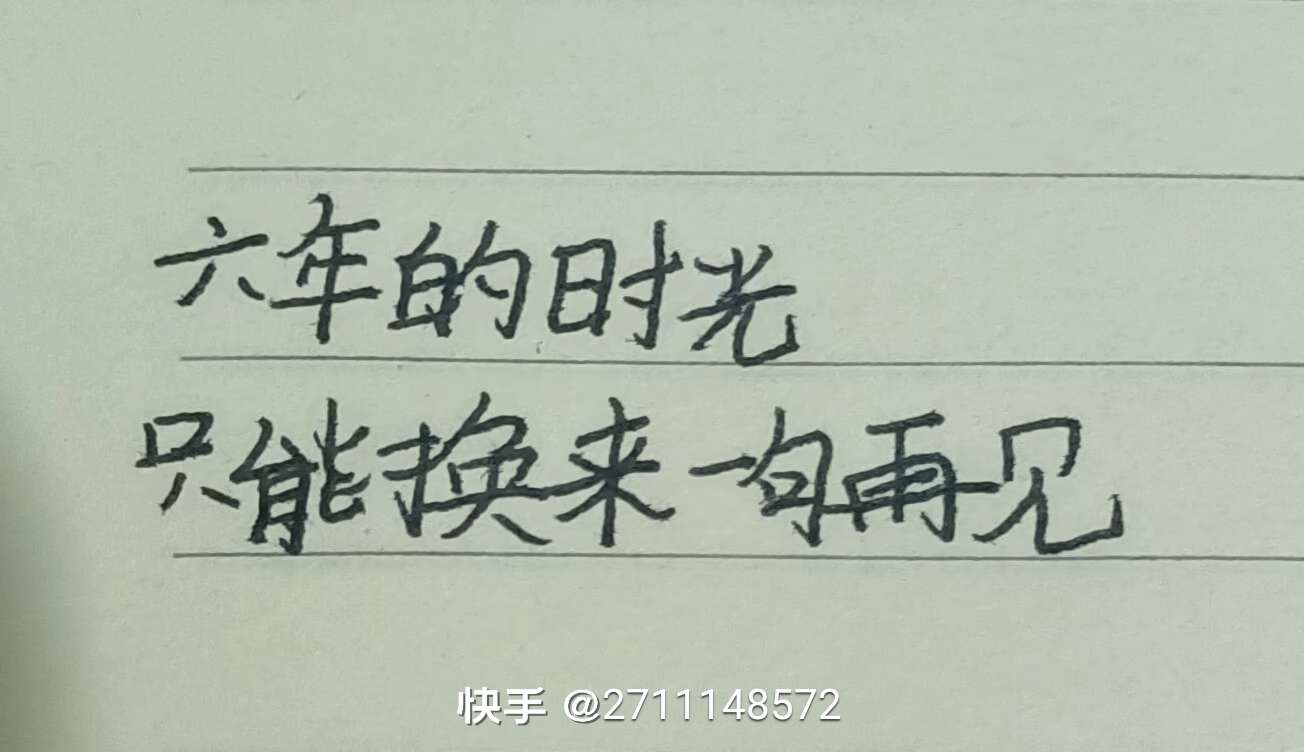 六年的时光
只能换来一句再见
快手 @2711148572